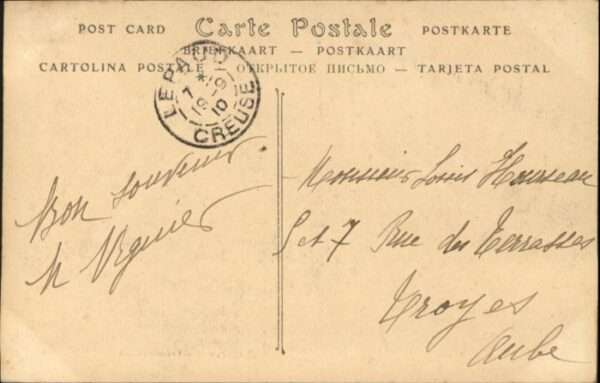 POST CARD — Carte Postale — POSTKARTE
BRIEFKAART — POSTKAART
CARTOLINA POSTALE — ОТКРЫТОЕ ПИСЬМО — TARJETA POSTAL
LEPAUD
CREUSE
10
Bon souvenir
Monsieur Louis
5 et 7 Rue des Terrasses
Troyes
Aube